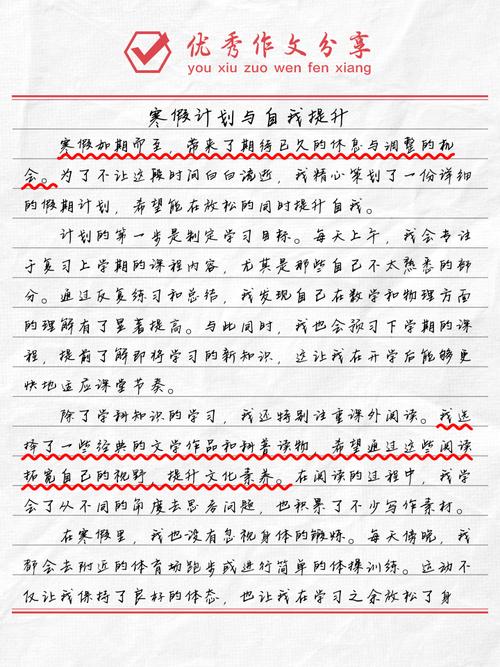 优秀作文分享
you xiu zuo wen fen xiang
寒假计划与自我提升
寒假如期而至，带来了期待已久的休息与调整的机
会。为了不让这段时间白白流逝，我精心策划了一份详细
的假期计划，希望能在放松的同时提升自我。
计划的第一步是制定学习目标。每天上午，我会专注
于复习上学期的课程内容，尤其是那些自己不太熟悉的部
分。通过反复练习和总结，我发现自己在数学和物理方面
的理解有了显著提高。与此同时，我也会预习下学期的课
程，提前了解即将学习的新知识，这让我在开学后能够更
快地适应课堂节奏。
除了学科知识的学习，我还特别注重课外阅读。我选
择了一些经典的文学作品和科普读物，希望通过这些阅读
拓宽自己的视野，提升文化素养。在阅读的过程中，我学
会了从不同的角度去思考问题，也积累了不少写作素材。
在寒假里，我也没有忽视身体的锻炼。每天傍晚，我
都会去附近的体育场跑步或进行简单的体操训练。运动不
仅让我保持了良好的体态，也让我在学习之余放松了身